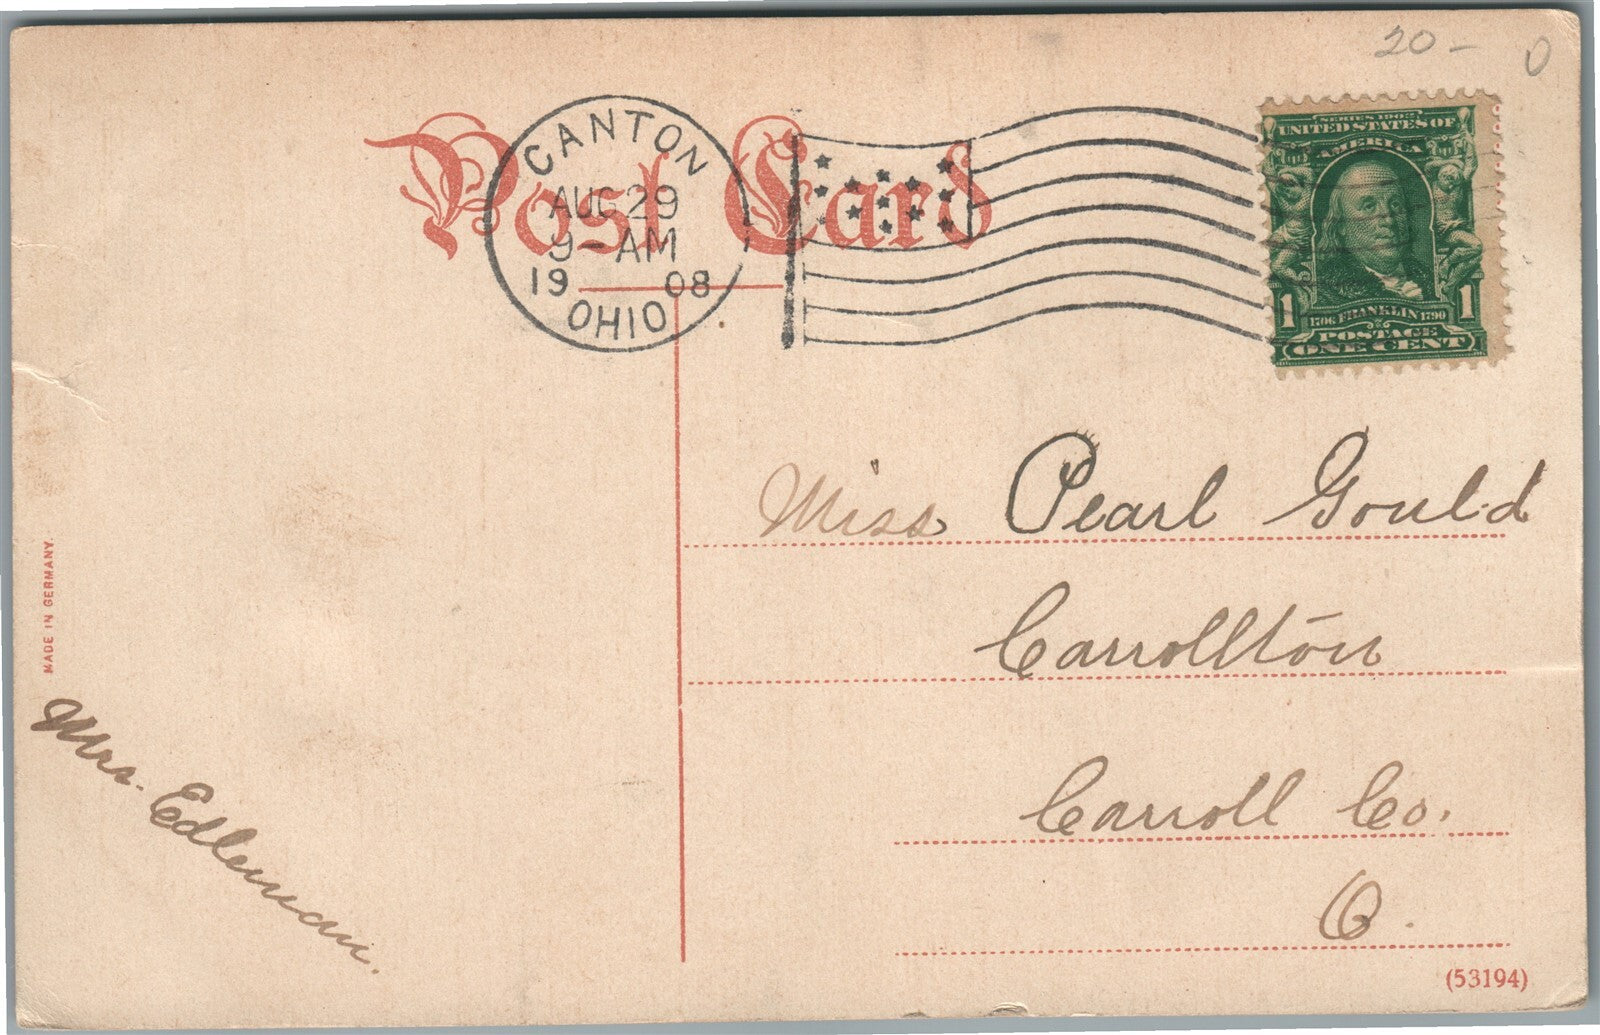 20 - 0
Post Card
CANTON
AUG 29
9 - AM
19 08
OHIO
SERIES 1902
UNITED STATES OF
AMERICA
1 1
1706 FRANKLIN 1790
POSTAGE
ONE CENT
Miss Pearl Gould
Carrollton
Carroll Co.
O.
MADE IN GERMANY.
Mrs. Edleman.
(53194)